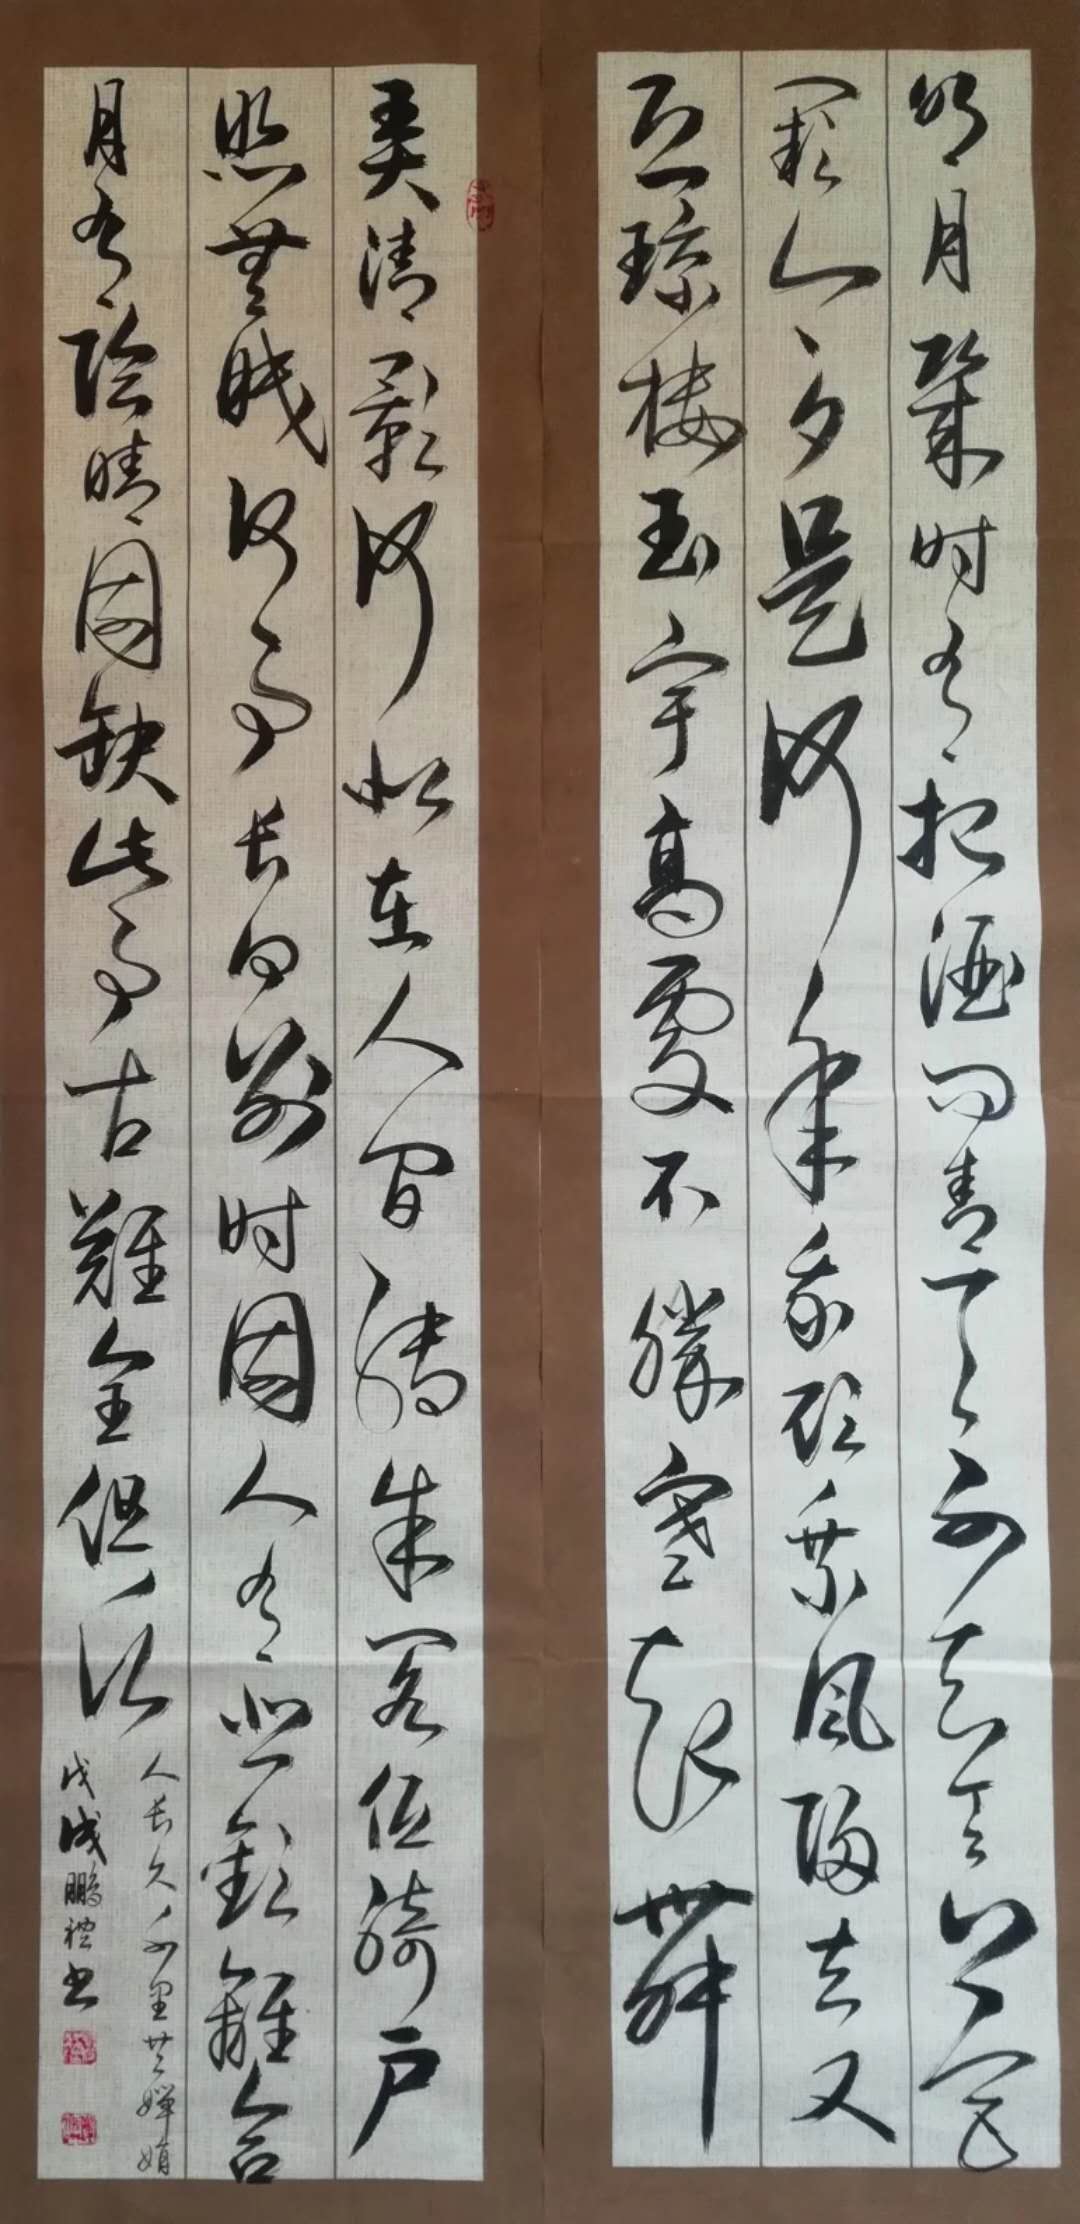 明月幾时有把酒问青天不知天上宫
阙今夕是何年我欲乘风归去又
恐琼楼玉宇高處不勝寒起舞
弄清影何似在人间转朱阁低绮户
照無眠何事长向别时圆人有悲歡離合
月有陰晴圆缺此事古難全但愿
人长久千里共婵娟
戊戌鹏程书